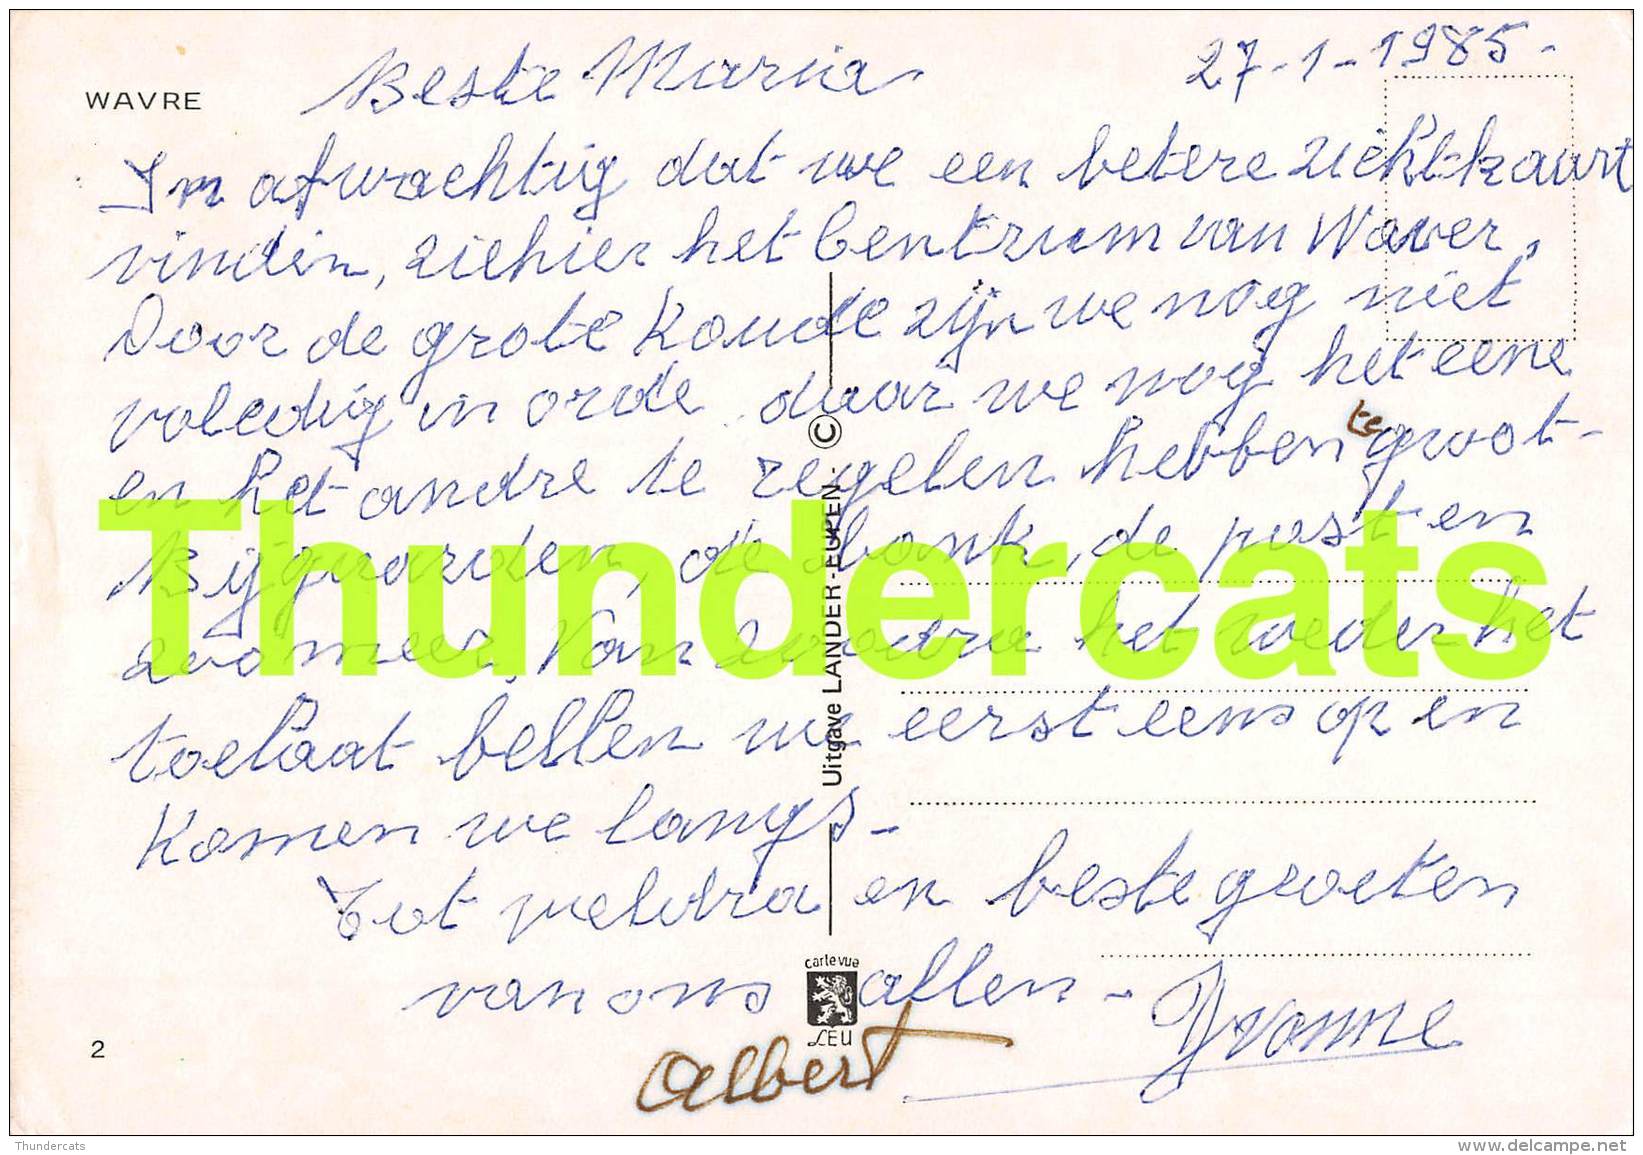 27-1-1985-
WAVRE
Beste Maria
In afwachtig dat we een betere zichtkaart
vinden, ziehier het Centrum van Waver,
Door de grote koude zijn we nog niet
voledig in orde daar we nog het eene
en het andre te regelen hebben te groot-
Bijgaarden, de bank, de post en
zoomeer, Van zoodra het weder het
toelaat bellen we eerst eens op en
komen we langs -
Tot weldra en beste groeten
van ons allen - Yvonne
Albert
Uitgave LANDER-EUPEN. ©
carte vue
LEU
2
Thundercats
Thundercats
www.delcampe.net